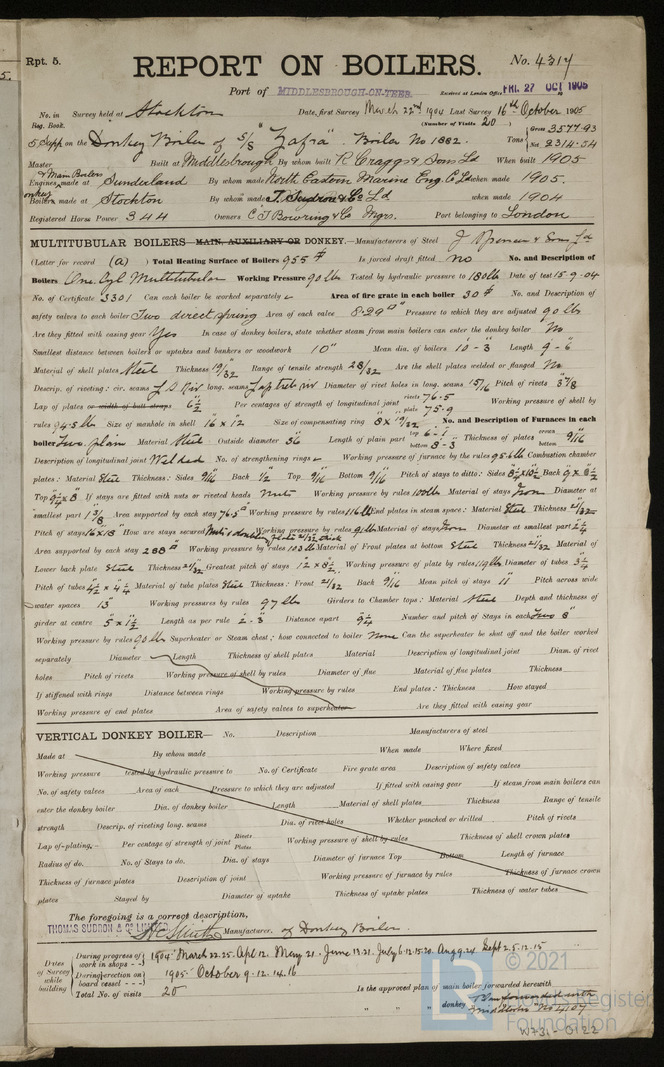 Rpt. 5.
REPORT ON BOILERS.
No. 4317
Port of MIDDLESBROUGH-ON-TEES. Received at London Office FRI. 27 OCT 1905
No. in Reg. Book. Survey held at Stockton Date, first Survey March 22nd 1904 Last Survey 16th October 1905
(Number of Visits 20)
5 Supp on the Donkey Boiler of S/S "Zafra" Boiler No 1882. Tons Gross 3577.93 Net 2314.54
Master Built at Middlesbrough By whom built R. Craggs & Sons Ld When built 1905
Engines made at Sunderland By whom made North Eastern Marine Eng. Co Ld when made 1905.
& Main Boilers
Donkey Boilers made at Stockton By whom made T. Sudron & Co Ld when made 1904
Registered Horse Power 344 Owners C. T. Bowring & Co Mgrs. Port belonging to London
MULTITUBULAR BOILERS MAIN, AUXILIARY OR DONKEY.—Manufacturers of Steel J Spencer & Sons Ld
(Letter for record (a) ) Total Heating Surface of Boilers 955 # Is forced draft fitted no No. and Description of
Boilers One Cyl Multitubular Working Pressure 90 lbs Tested by hydraulic pressure to 180 lbs Date of test 15-9-04
No. of Certificate 3301 Can each boiler be worked separately Area of fire grate in each boiler 30 # No. and Description of
safety valves to each boiler Two direct spring Area of each valve 8.29 Pressure to which they are adjusted 90 lbs
Are they fitted with easing gear Yes In case of donkey boilers, state whether steam from main boilers can enter the donkey boiler No
Smallest distance between boilers or uptakes and bunkers or woodwork 10" Mean dia. of boilers 10-3 Length 9-6
Material of shell plates Steel Thickness 19/32 Range of tensile strength 28/32 Are the shell plates welded or flanged No
Descrip. of riveting: cir. seams long. seams Lap treb riv Diameter of rivet holes in long. seams 15/16 Pitch of rivets 3 7/8
Lap of plates or width of butt straps 6 1/2 Per centages of strength of longitudinal joint rivets 76.5 plate 75.9 Working pressure of shell by
rules 94.5 lbs Size of manhole in shell 16 x 12 Size of compensating ring 8 x 19/32 No. and Description of Furnaces in each
boiler Two plain Material Steel Outside diameter 36 Length of plain part top 6-1 bottom 8-3 Thickness of plates crown bottom 9/16
Description of longitudinal joint Welded No. of strengthening rings Working pressure of furnace by the rules 95.6 lbs Combustion chamber
plates: Material Steel Thickness: Sides 9/16 Back 1/2 Top 9/16 Bottom 9/16 Pitch of stays to ditto: Sides Back 9 x 8 1/2
Top 9 1/4 x 8 If stays are fitted with nuts or riveted heads Nuts Working pressure by rules 100 lbs Material of stays Iron Diameter at
smallest part 1 3/8 Area supported by each stay 76.5 Working pressure by rules 116 lbs End plates in steam space: Material Steel Thickness 21/32
Pitch of stays 16 x 18 How are stays secured Nuts & doubling plate 21/32 thick Working pressure by rules 91 lbs Material of stays Iron Diameter at smallest part 2 1/4
Area supported by each stay 288 Working pressure by rules 103 lbs Material of Front plates at bottom Steel Thickness 21/32 Material of
Lower back plate Steel Thickness 21/32 Greatest pitch of stays 12 x 8 1/2 Working pressure of plate by rules 119 lbs Diameter of tubes 3 1/4
Pitch of tubes 4 1/2 x 4 1/4 Material of tube plates Steel Thickness: Front 21/32 Back 9/16 Mean pitch of stays 11 Pitch across wide
water spaces 13" Working pressures by rules 97 lbs Girders to Chamber tops: Material Steel Depth and thickness of
girder at centre 5 x 1 1/2 Length as per rule 2-3 Distance apart 9 1/4 Number and pitch of Stays in each Two 8"
Working pressure by rules 90 lbs Superheater or Steam chest; how connected to boiler None Can the superheater be shut off and the boiler worked
separately Diameter Length Thickness of shell plates Material Description of longitudinal joint Diam. of rivet
holes Pitch of rivets Working pressure of shell by rules Diameter of flue Material of flue plates Thickness
If stiffened with rings Distance between rings Working pressure by rules End plates: Thickness How stayed
Working pressure of end plates Area of safety valves to superheater Are they fitted with easing gear
VERTICAL DONKEY BOILER— No. Description Manufacturers of steel
Made at By whom made When made Where fixed
Working pressure tested by hydraulic pressure to No. of Certificate Fire grate area Description of safety valves
No. of safety valves Area of each Pressure to which they are adjusted If fitted with easing gear If steam from main boilers can
enter the donkey boiler Dia. of donkey boiler Length Material of shell plates Thickness Range of tensile
strength Descrip. of riveting long. seams Dia. of rivet holes Whether punched or drilled Pitch of rivets
Lap of plating Per centage of strength of joint Rivets Plates Working pressure of shell by rules Thickness of shell crown plates
Radius of do. No. of Stays to do. Dia. of stays Diameter of furnace Top Bottom Length of furnace
Thickness of furnace plates Description of joint Working pressure of furnace by rules Thickness of furnace crown
plates Stayed by Diameter of uptake Thickness of uptake plates Thickness of water tubes
The foregoing is a correct description,
THOMAS SUDRON & CO LIMITED Manufacturer. of Donkey Boiler.
Dates of Survey while building
During progress of work in shops - - 1904 March 22.25. Apl 12. May 21. June 13.21. July 6.12.15.20. Aug 9.24. Sept 2.5.12.15
During erection on board vessel - - - 1905. October 9.12.14.16
Total No. of visits 20 Is the approved plan of main boiler forwarded herewith
" " " donkey " " forwarded with
W731-0122
© 2021
LR
Lloyd's Register
Foundation